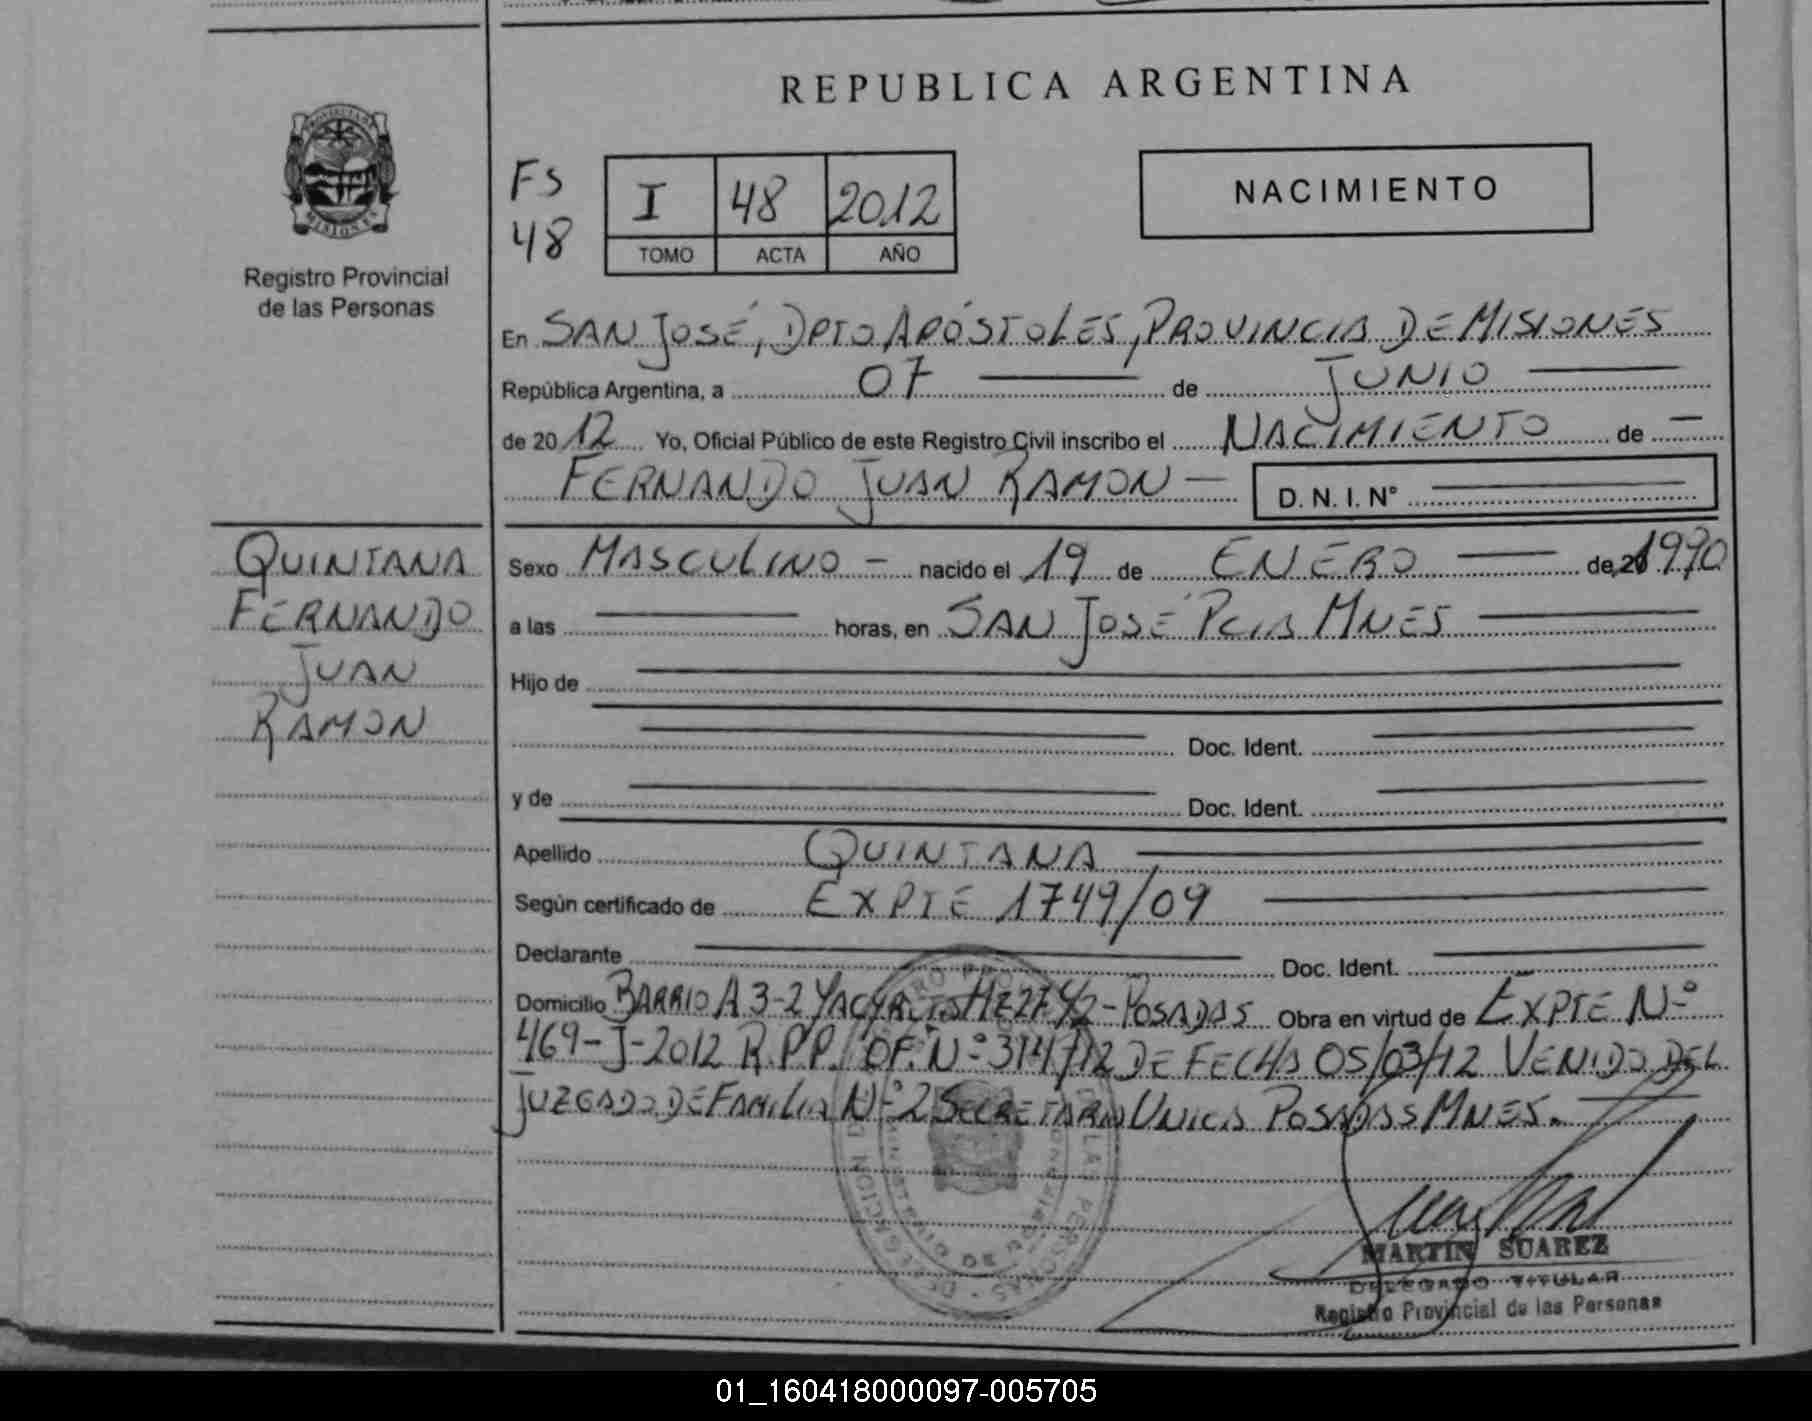 REPUBLICA ARGENTINA
PROVINCIA DE
MISIONES
Registro Provincial
de las Personas
FS
48
I 48 2012
TOMO ACTA AÑO
NACIMIENTO
En SAN JOSÉ, DPTO APÓSTOLES, PROVINCIA DE MISIONES
República Argentina, a 07 de JUNIO
de 2012 Yo, Oficial Público de este Registro Civil inscribo el NACIMIENTO de
FERNANDO JUAN RAMON D. N. I. N°
QUINTANA
FERNANDO
JUAN
RAMON
Sexo MASCULINO nacido el 19 de ENERO de 20 1990
a las horas, en SAN JOSÉ PCIA MNES
Hijo de
Doc. Ident.
y de Doc. Ident.
Apellido QUINTANA
Según certificado de EXPTE 1749/09
Declarante Doc. Ident.
Domicilio BARRIO A 3-2 POSADAS Obra en virtud de EXPTE Nº
469-J-2012 R.P.P. OF. Nº 314/12 DE FECHA 05/03/12 VENIDO DEL
JUZGADO DE FAMILIA Nº 2 SECRETARIA UNICA POSADAS MNES.
MARTIN SUAREZ
DELEGADO TITULAR
Registro Provincial de las Personas
01_160418000097-005705